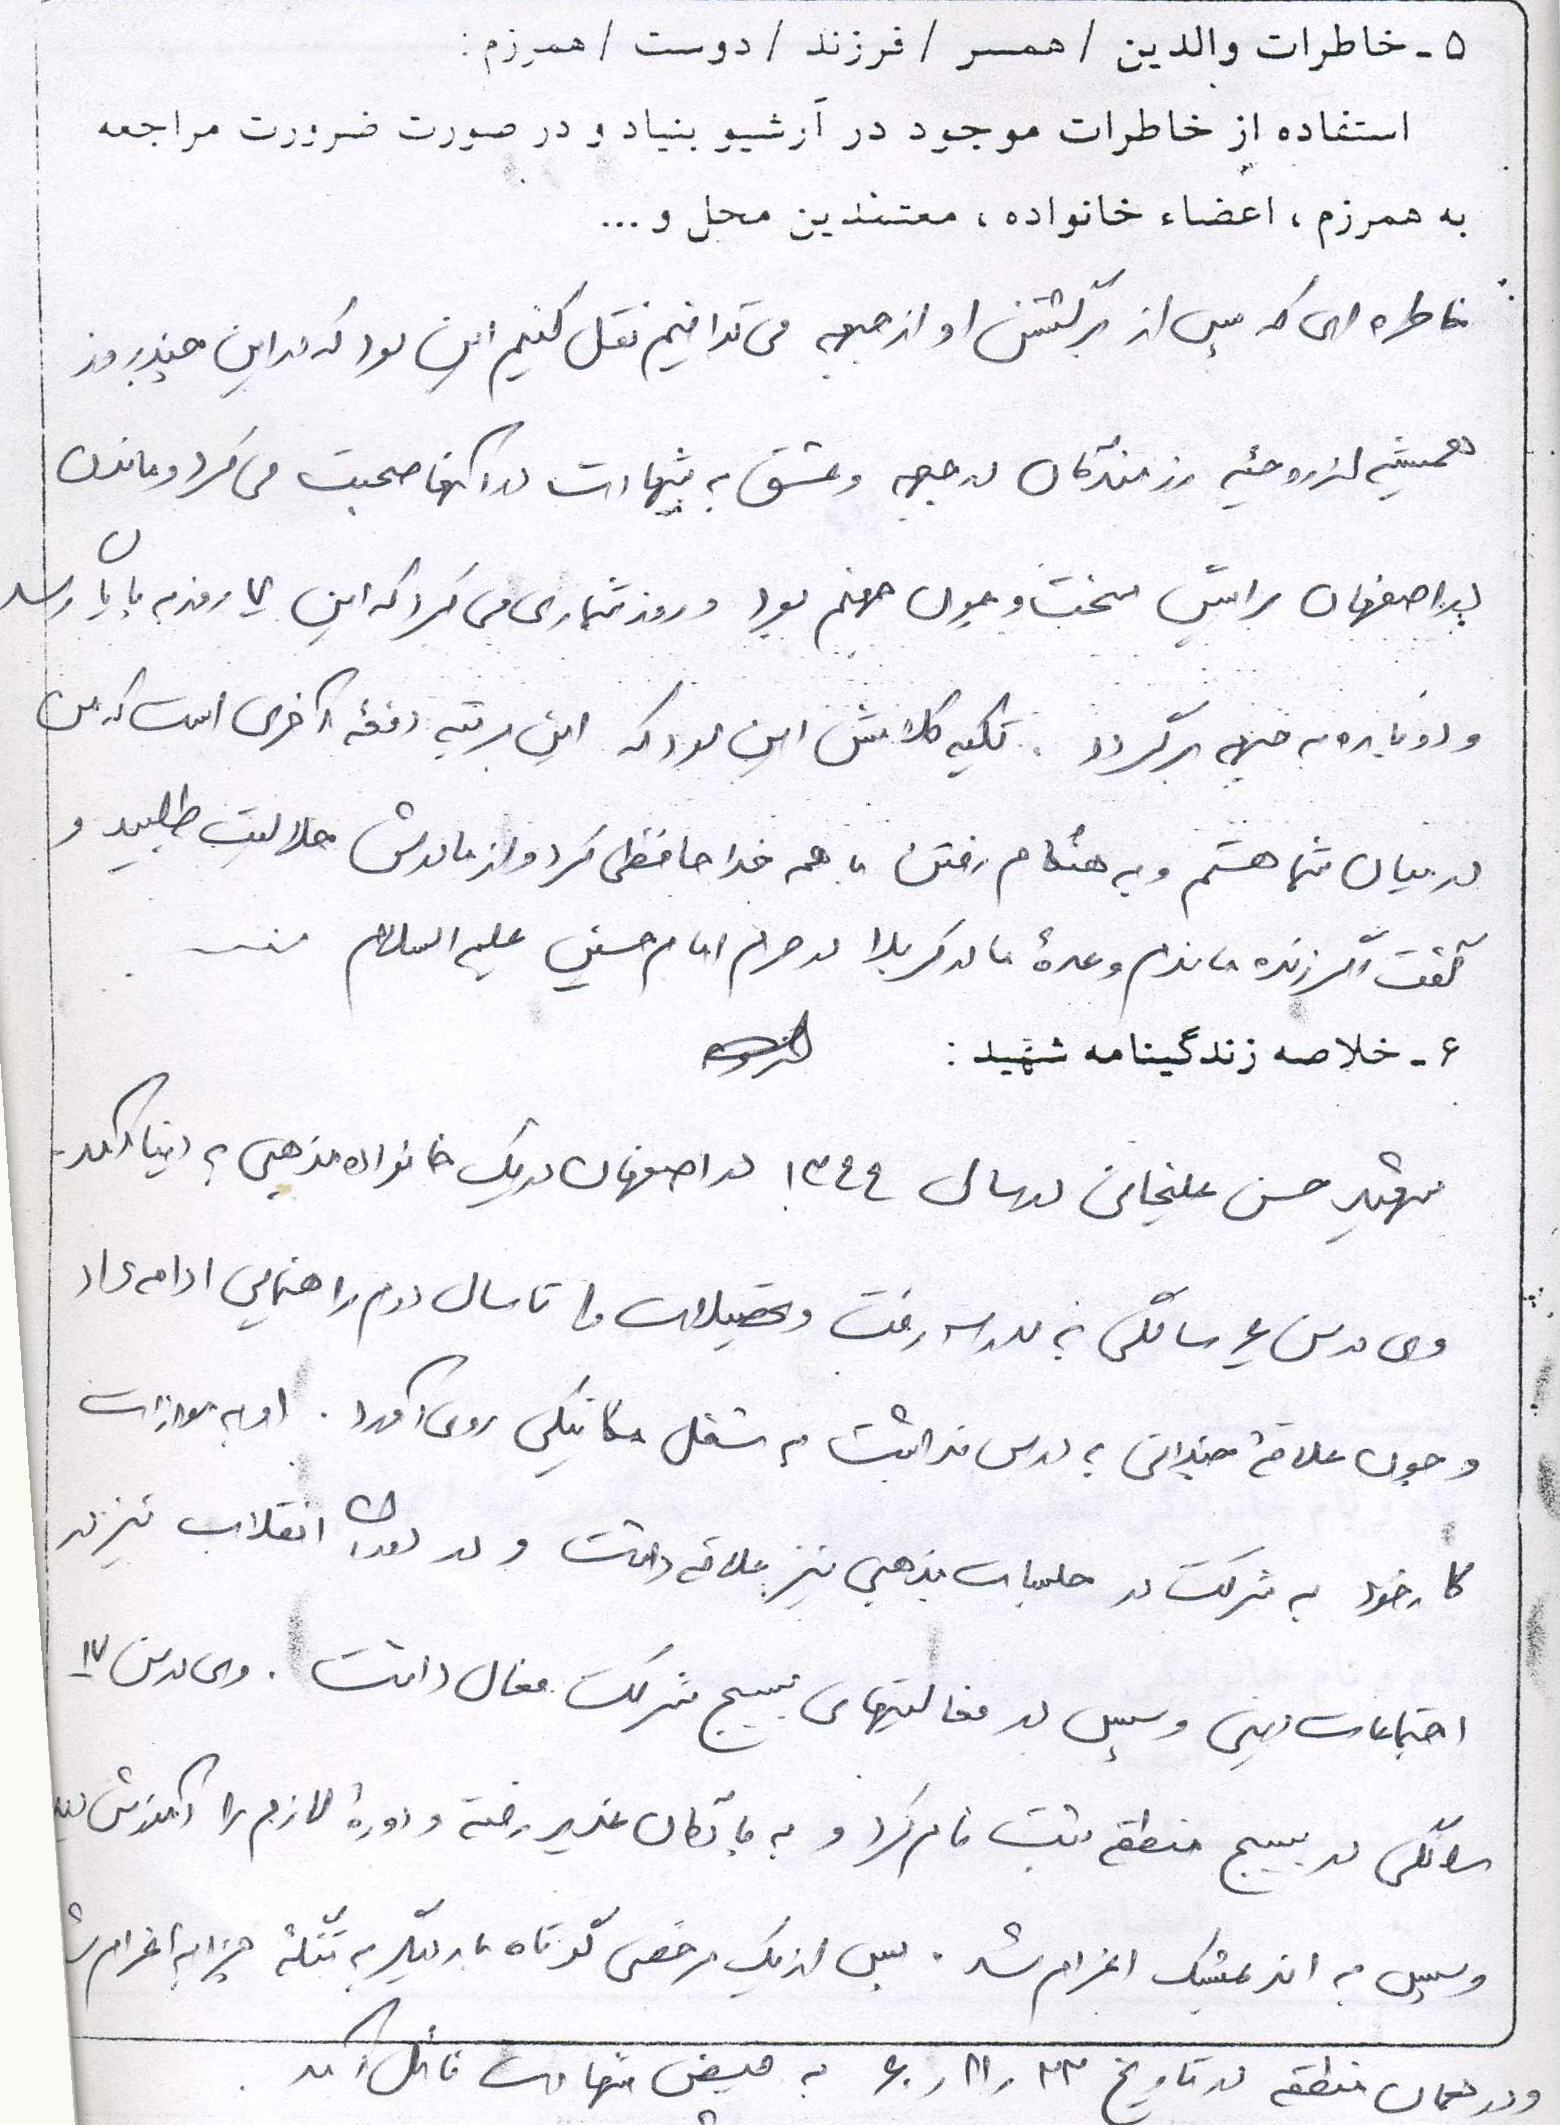 ۵ - خاطرات والدین / همسر / فرزند / دوست / همرزم :
استفاده از خاطرات موجود در آرشیو بنیاد و در صورت ضرورت مراجعه
به همرزم ، اعضاء خانواده ، معتمدین محل و ...
خاطره ای که پس از برگشتن او از جبهه می توانیم نقل کنیم این بود که در این چند روز
همیشه از روحیه رزمندگان در جبهه و عشق به شهادت در آنها صحبت می کرد و ماندن
در اصفهان برایش سخت و چون جهنم بود و روز شماری می کرد که این روزها بپایان رسد
و دوباره به جبهه برگردد . تکیه کلامش این بود که این مرتبه دفعه آخری است که من
در میان شما هستم و به هنگام رفتن با همه خداحافظی کرد و از مادرش حلالیت طلبید و
گفت اگر زنده ماندم وعدهٔ ما در کربلا در حرم امام حسین علیه السلام
۶ - خلاصه زندگینامه شهید :
شهید حسن علیخانی در سال ۱۳۴۴ در اصفهان در یک خانواده مذهبی به دنیا آمد
وی در سن ۶ سالگی به مدرسه رفت و تحصیلات را تا سال دوم راهنمایی ادامه داد
و چون علاقهٔ چندانی به درس نداشت به شغل مکانیکی روی آورد . او به موازات
کار خود به شرکت در جلسات مذهبی نیز علاقه داشت و در دوران انقلاب نیز در
اجتماعات دینی و سپس در فعالیتهای بسیج شرکت فعال داشت . وی در سن ۱۷
سالگی در بسیج منطقه ثبت نام کرد و به پادگان غدیر رفته و دورهٔ لازم را آموزش دید
و سپس به اندیمشک اعزام شد . پس از یک مرخصی کوتاه بار دیگر به تنگهٔ چزابه اعزام شد
و در همان منطقه در تاریخ ۲۳ ر ۱۱ ر ۶۰ به فیض شهادت نائل آمد .